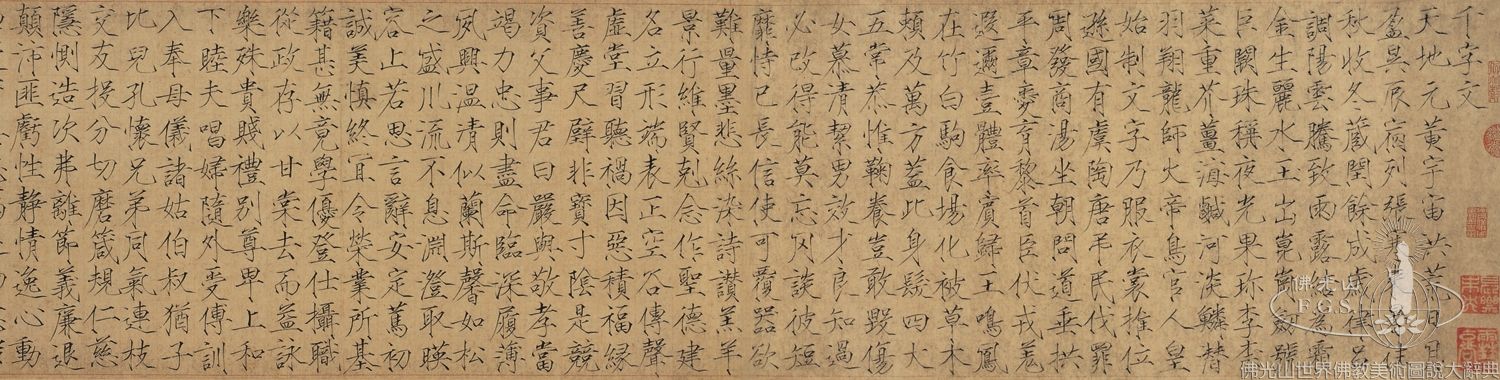 千字文
天地元黃宇宙洪荒日月
盈昃辰宿列張
秋收冬藏閏餘成歲律呂
調陽雲騰致雨露結為霜
金生麗水玉出崑崗劍號
巨闕珠稱夜光果珍李柰
菜重芥薑海鹹河淡鱗潛
羽翔龍師火帝鳥官人皇
始制文字乃服衣裳推位
遜國有虞陶唐弔民伐罪
周發商湯坐朝問道垂拱
平章愛育黎首臣伏戎羌
遐邇壹體率賓歸王鳴鳳
在竹白駒食場化被草木
賴及萬方蓋此身髮四大
五常恭惟鞠養豈敢毀傷
女慕清絜男效才良知過
必改得能莫忘罔談彼短
靡恃已長信使可覆器欲
難量墨悲絲染詩讚羔羊
景行維賢剋念作聖德建
名立形端表正空谷傳聲
虛堂習聽禍因惡積福緣
善慶尺璧非寶寸陰是競
資父事君曰嚴與敬孝當
竭力忠則盡命臨深履薄
夙興溫清似蘭斯馨如松
之盛川流不息淵澄取暎
容止若思言辭安定篤初
誠美慎終宜令榮業所基
籍甚無竟學優登仕攝職
從政存以甘棠去而益詠
樂殊貴賤禮別尊卑上和
下睦夫唱婦隨外受傅訓
入奉母儀諸姑伯叔猶子
比兒孔懷兄弟同氣連枝
交友投分切磨箴規仁慈
隱惻造次弗離節義廉退
顛沛匪虧性靜情逸心動
佛光山
F.G.S.
佛光山世界佛教美術圖說大辭典